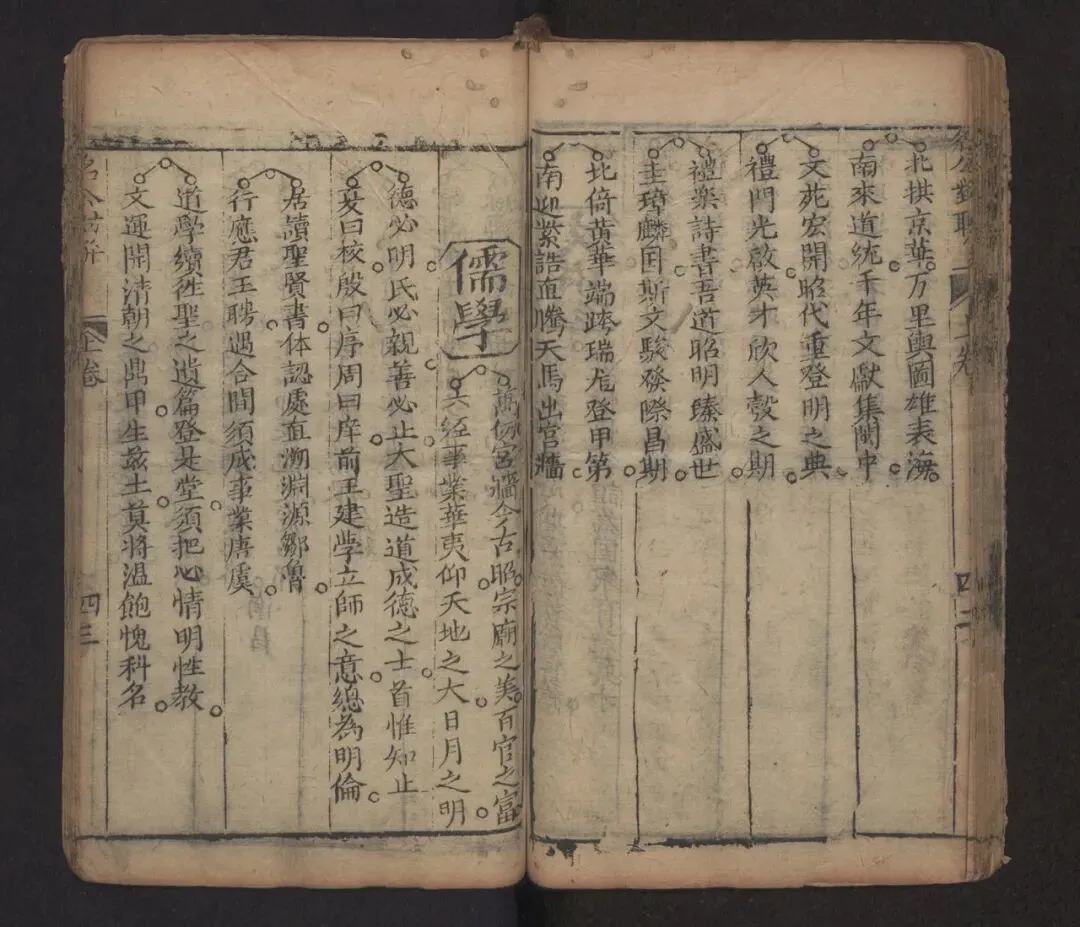 北拱京華万里輿圖雄表海
南來道統千年文獻集閩中
文苑宏開昭代重登明之典
禮門光啟英才欣人彀之期
禮樂詩書吾道昭明臻盛世
圭璋麟国斯文駿發際昌期
北倚黃華端跨瑞尨登甲第
南迎紫誥直騰天馬出宮牆
儒學
萬仞宮牆今古昭宗廟之美百官之富
六経事業華夷仰天地之大日月之明
德必明民必親善必止大聖造道成德之士首惟知止
夏曰校殷曰序周曰庠前王建學立師之意總為明倫
居讀聖賢書体認處直溯淵源鄒魯
行應君王聘遇合間須成事業唐虞
道學續徃聖之遺篇登是堂須把心情明性教
文運開清朝之鼎甲生兹土莫將温飽愧科名
卷
四三